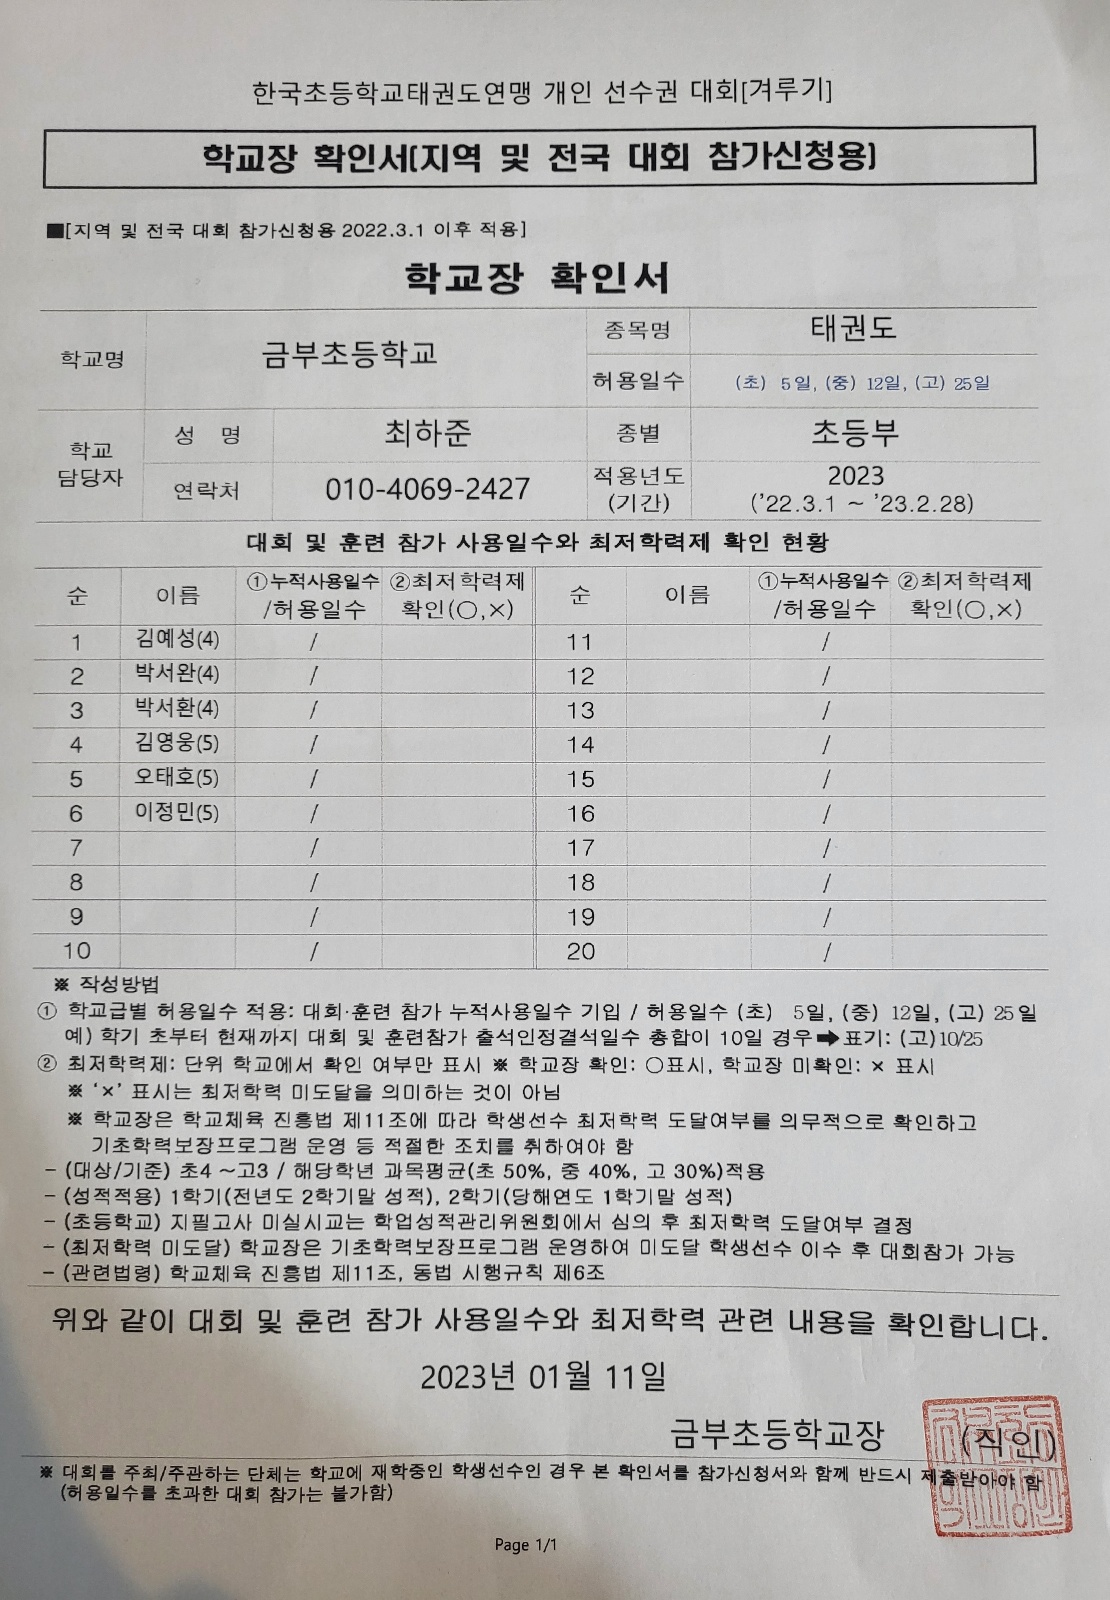 한국초등학교태권도연맹 개인 선수권 대회[겨루기]
학교장 확인서(지역 및 전국 대회 참가신청용)
■[지역 및 전국 대회 참가신청용 2022.3.1 이후 적용]
학교장 확인서
학교명 금부초등학교 종목명 태권도
허용일수 (초) 5일, (중) 12일, (고) 25일
학교 담당자 성 명 최하준 종별 초등부
연락처 010-4069-2427 적용년도 (기간) 2023 ('22.3.1 ~ '23.2.28)
대회 및 훈련 참가 사용일수와 최저학력제 확인 현황
순 이름 ①누적사용일수 /허용일수 ②최저학력제 확인(○,×) 순 이름 ①누적사용일수 /허용일수 ②최저학력제 확인(○,×)
1 김예성(4) / 11 /
2 박서완(4) / 12 /
3 박서환(4) / 13 /
4 김영웅(5) / 14 /
5 오태호(5) / 15 /
6 이정민(5) / 16 /
7 / 17 /
8 / 18 /
9 / 19 /
10 / 20 /
※ 작성방법
① 학교급별 허용일수 적용: 대회·훈련 참가 누적사용일수 기입 / 허용일수 (초) 5일, (중) 12일, (고) 25일
예) 학기 초부터 현재까지 대회 및 훈련참가 출석인정결석일수 총합이 10일 경우➡표기: (고)10/25
② 최저학력제: 단위 학교에서 확인 여부만 표시 ※ 학교장 확인: ○표시, 학교장 미확인: × 표시
※ '×' 표시는 최저학력 미도달을 의미하는 것이 아님
※ 학교장은 학교체육 진흥법 제11조에 따라 학생선수 최저학력 도달여부를 의무적으로 확인하고
기초학력보장프로그램 운영 등 적절한 조치를 취하여야 함
- (대상/기준) 초4 ~고3 / 해당학년 과목평균(초 50%, 중 40%, 고 30%)적용
- (성적적용) 1학기(전년도 2학기말 성적), 2학기(당해연도 1학기말 성적)
- (초등학교) 지필고사 미실시교는 학업성적관리위원회에서 심의 후 최저학력 도달여부 결정
- (최저학력 미도달) 학교장은 기초학력보장프로그램 운영하여 미도달 학생선수 이수 후 대회참가 가능
- (관련법령) 학교체육 진흥법 제11조, 동법 시행규칙 제6조
위와 같이 대회 및 훈련 참가 사용일수와 최저학력 관련 내용을 확인합니다.
2023년 01월 11일
금부초등학교장 (직인)
※ 대회를 주최/주관하는 단체는 학교에 재학중인 학생선수인 경우 본 확인서를 참가신청서와 함께 반드시 제출받아야 함
(허용일수를 초과한 대회 참가는 불가함)
Page 1/1